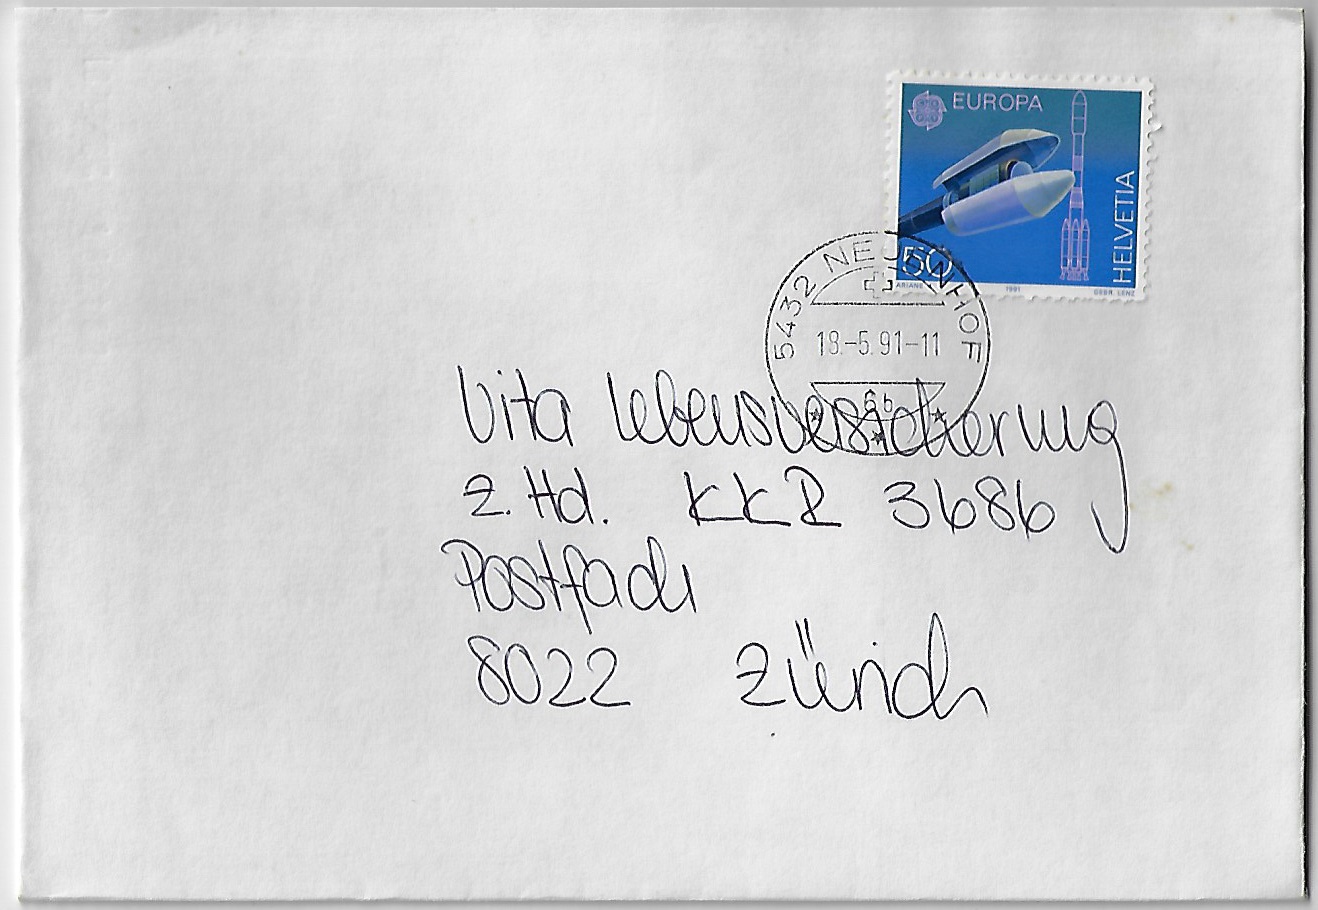 EUROPA
HELVETIA
50
ARIANE
1991
GEBR. LENZ
5432 NEUENHOF
18.-5.91-11
6b
Vita Lebensversicherung
z. Hd. KKR 3686
Postfach
8022 Zürich